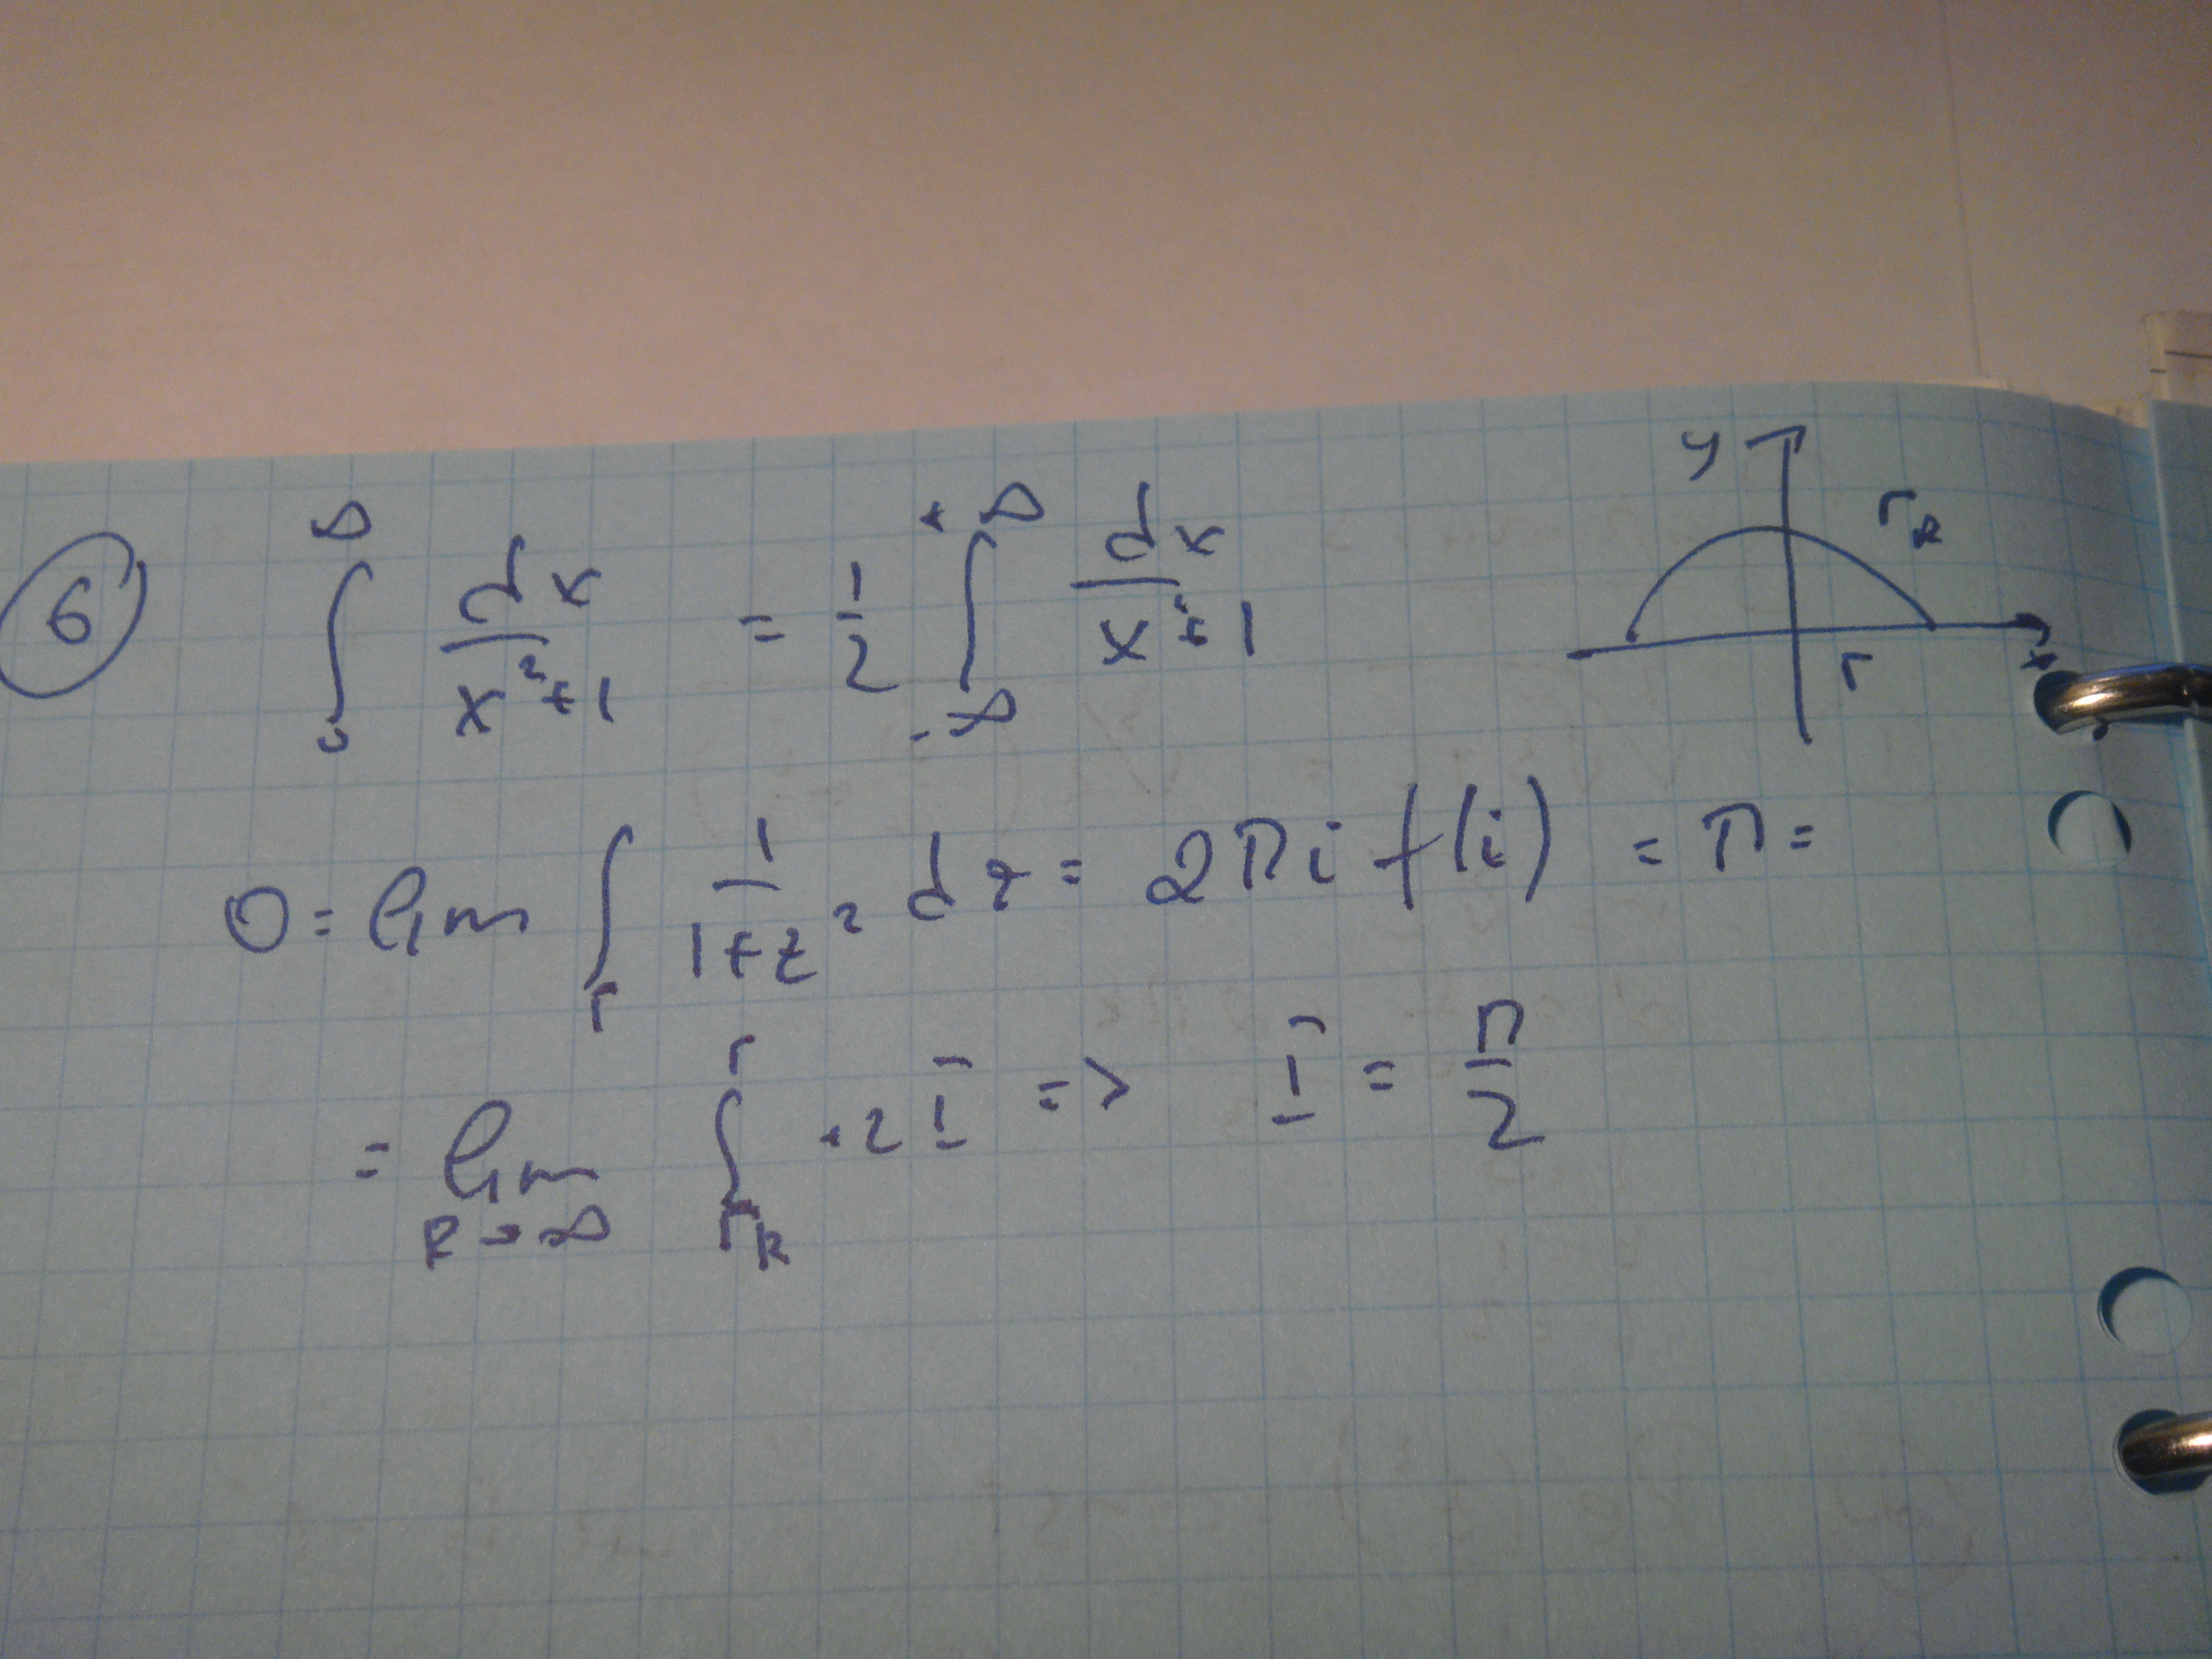 6 ∫₀^∞ dx/(x²+1) = 1/2 ∫_{-∞}^{+∞} dx/(x²+1)
y Γ_R Γ x
0 = lim ∫_Γ 1/(1+z²) dz = 2πi f(i) = π =
= lim_{R→∞} ∫_{Γ_R}^Γ + 2I => I = π/2